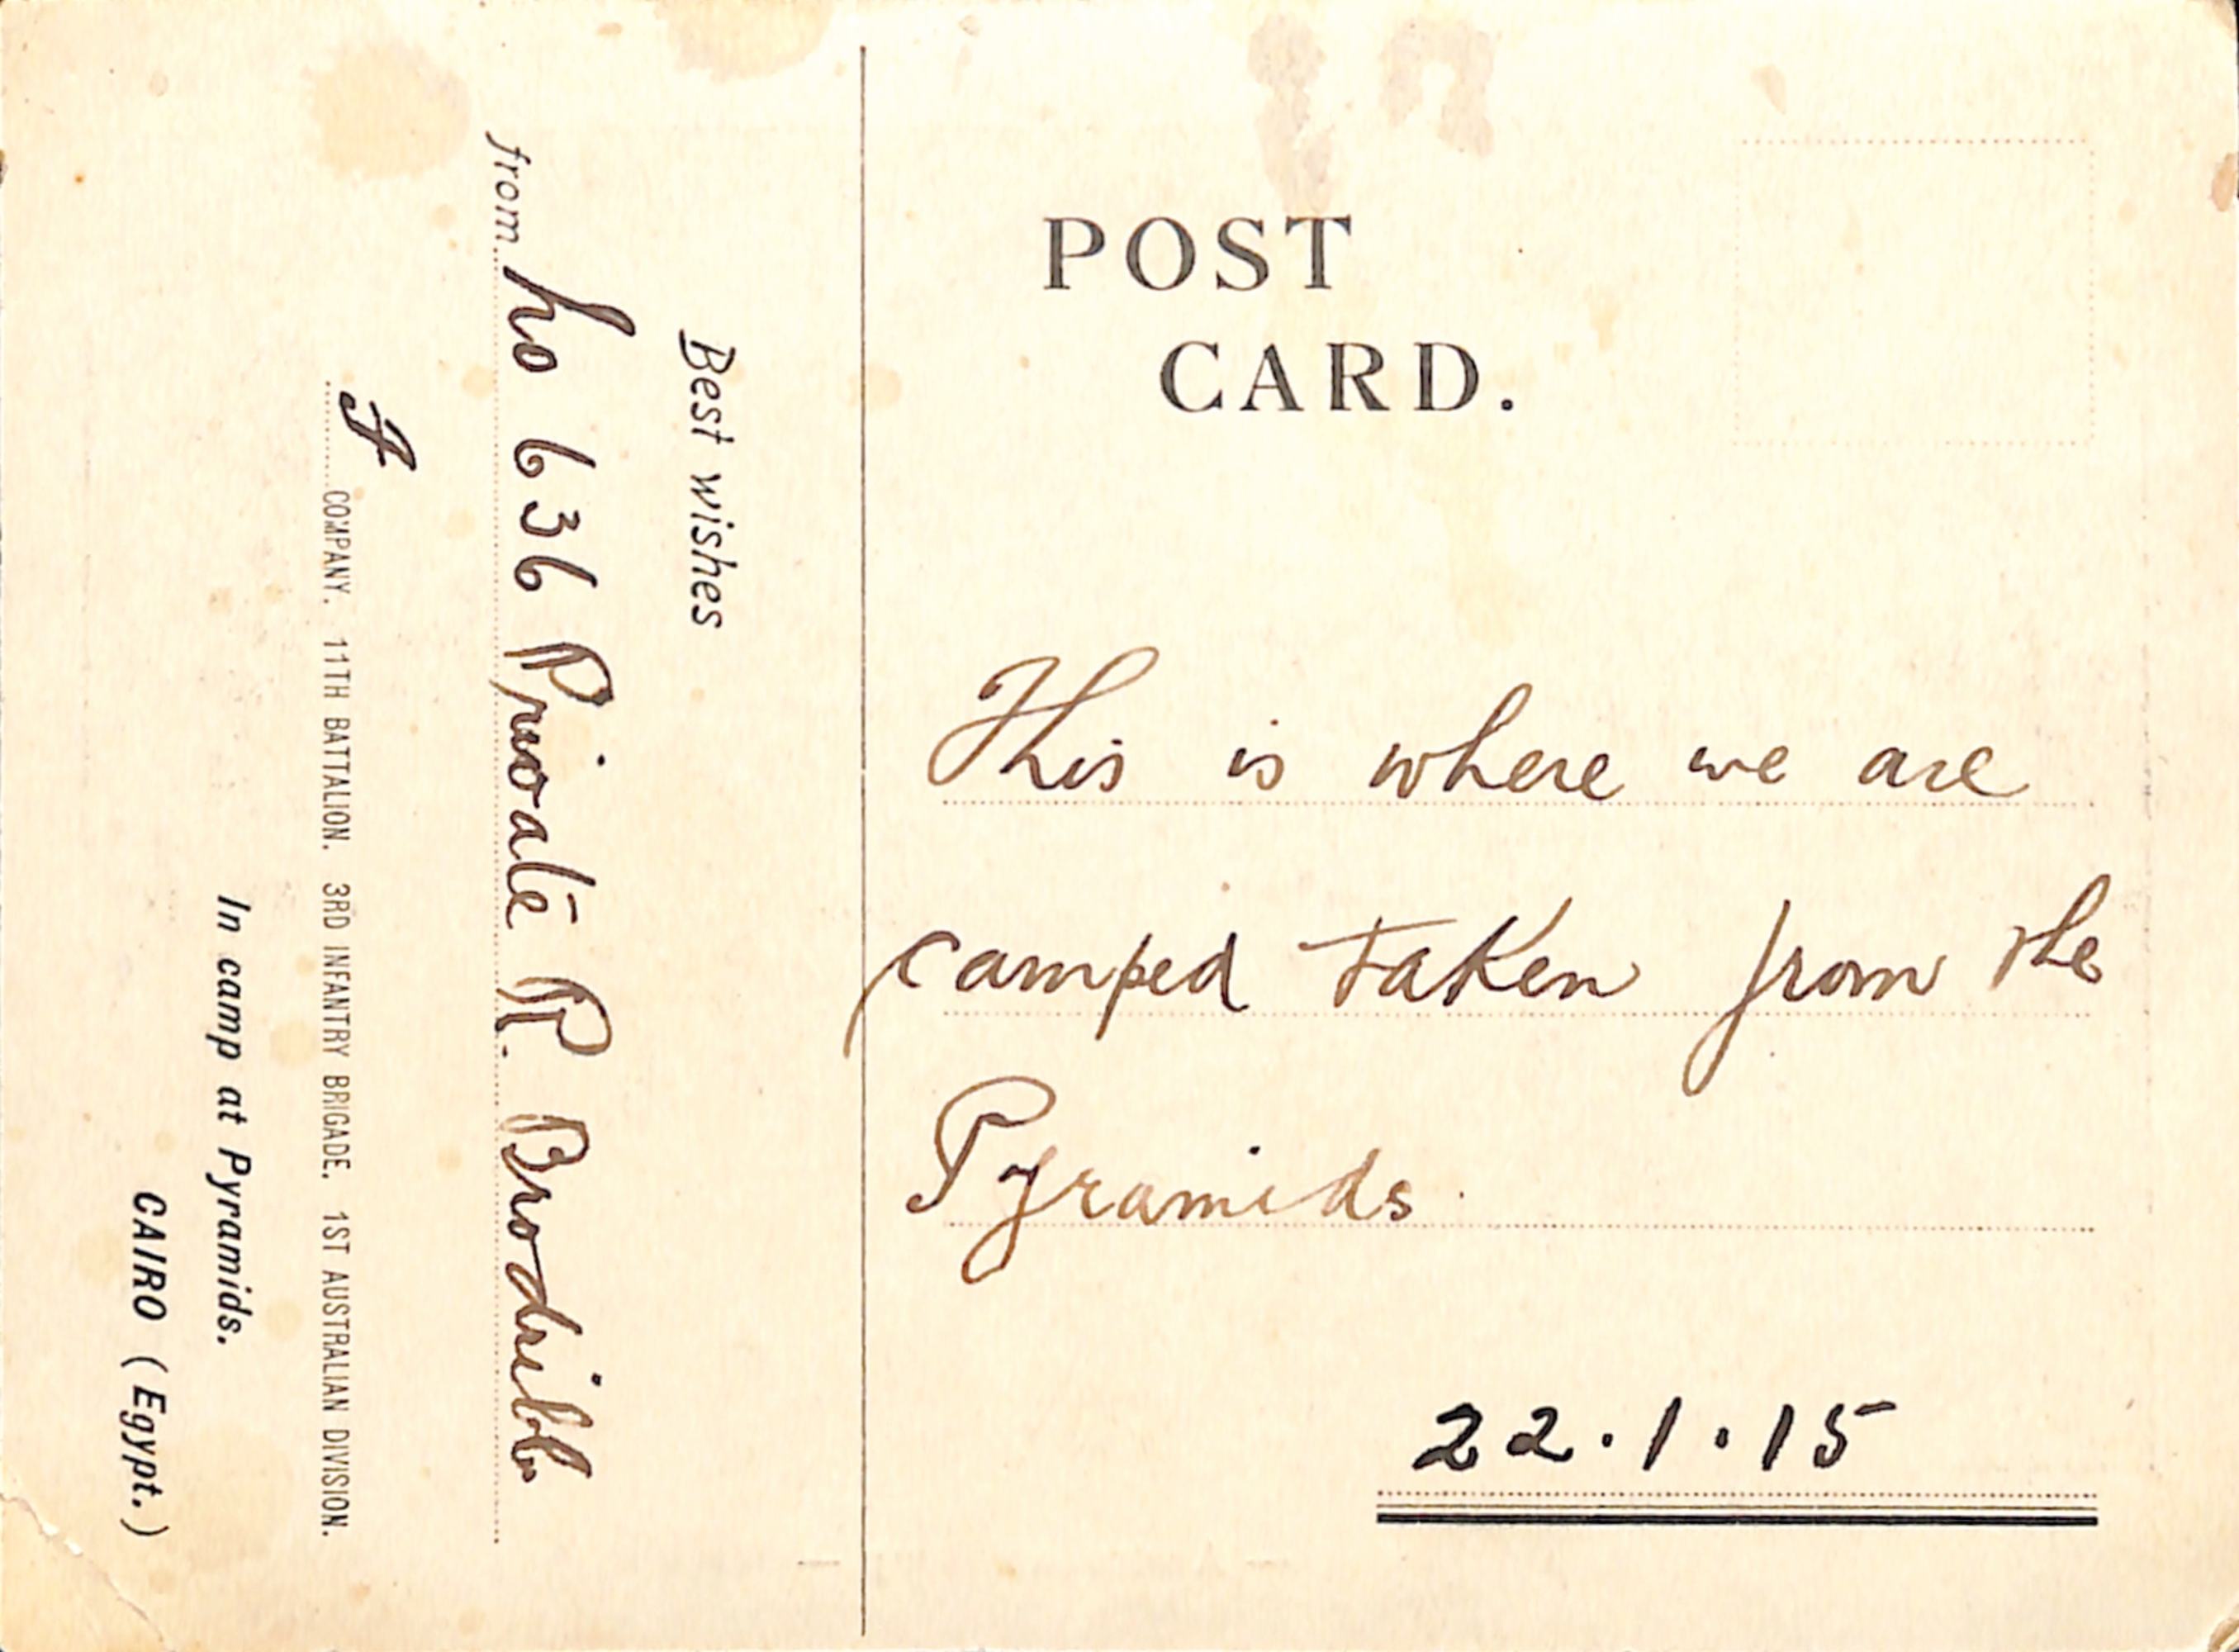 Best wishes
from No 636 Private R. Brodribb
A COMPANY. 11TH BATTALION. 3RD INFANTRY BRIGADE. 1ST AUSTRALIAN DIVISION.
In camp at Pyramids.
CAIRO (Egypt.)
POST
CARD.
This is where we are
camped taken from the
Pyramids.
22.1.15